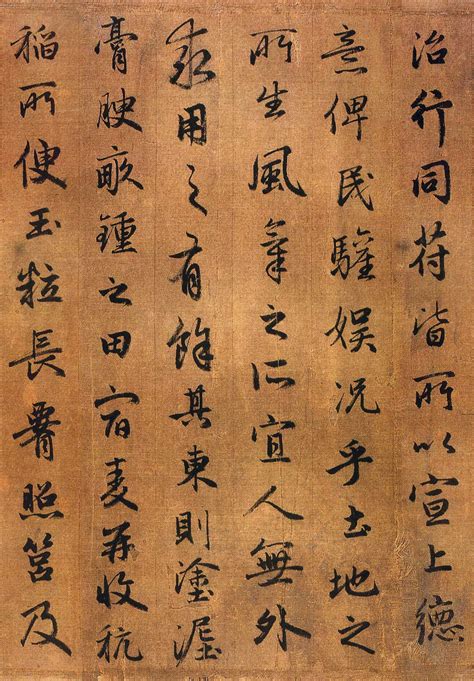 治行同符皆所以宣上德
意俾民驩娱况乎土地之
所生風氣之所宜人無外
求用之有餘其東則塗泥
膏腴畝鍾之田宿麦并收秔
稻所便玉粒長腰照筥及